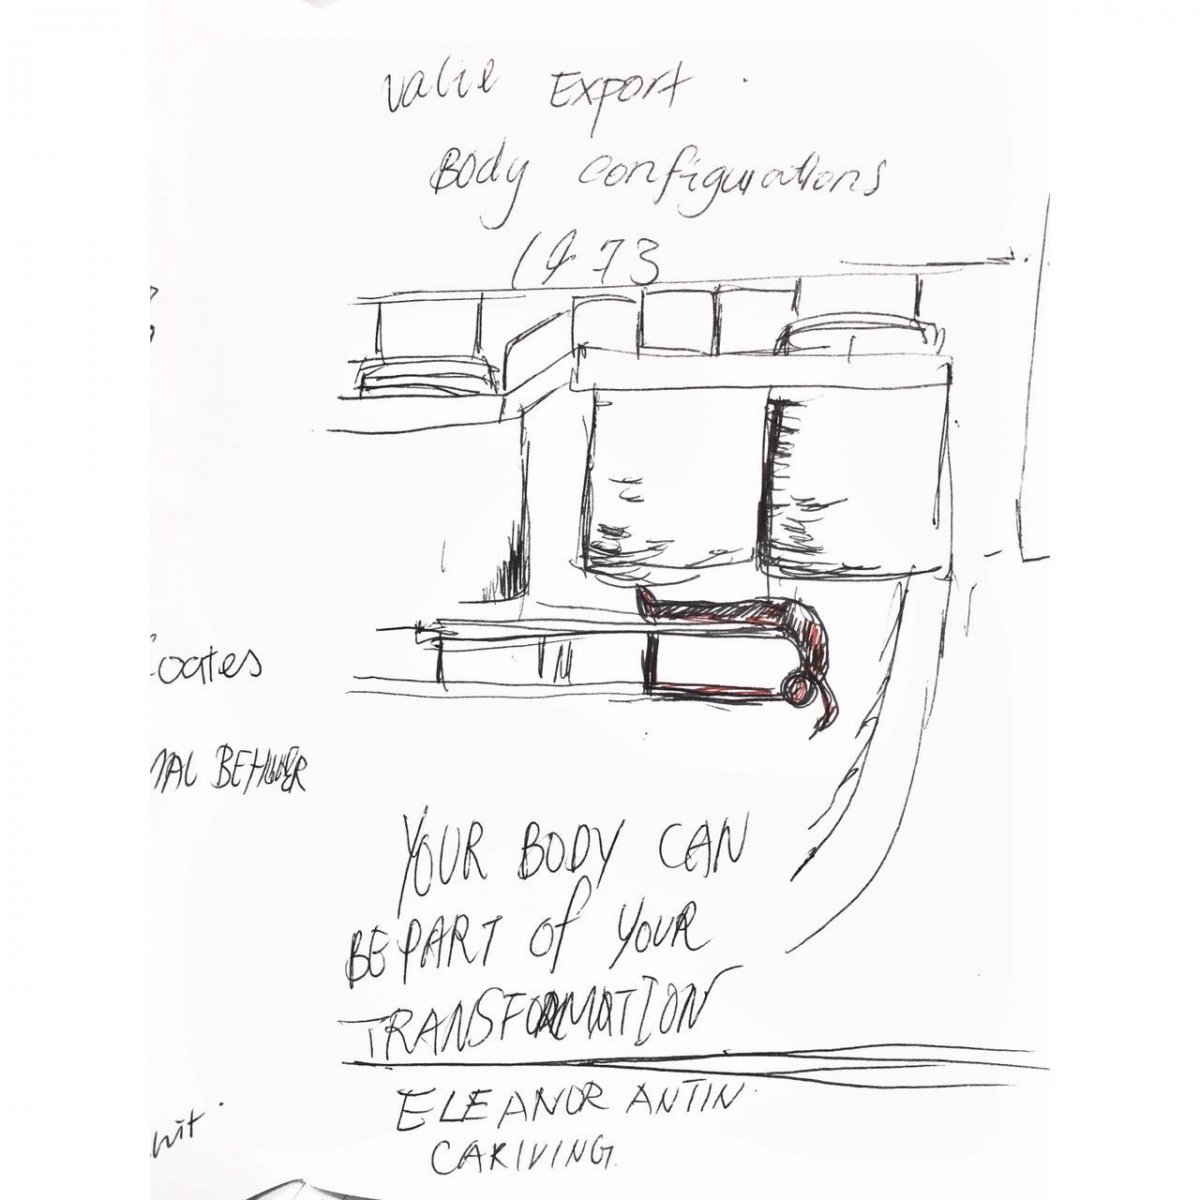 Valie Export
Body configurations
1973
oates
NAL BEHAVER
YOUR BODY CAN
BE PART of YOUR
TRANSFORMATION
ELEANOR ANTIN
CARIVING.